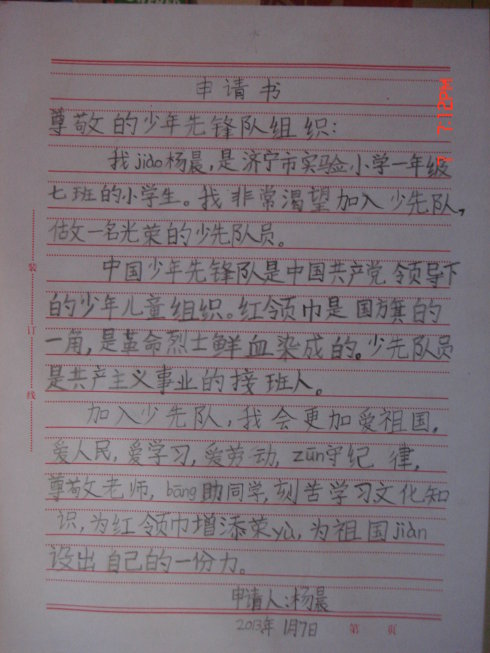 申请书
尊敬的少年先锋队组织:
我jiào杨晨,是济宁市实验小学一年级
七班的小学生。我非常渴望加入少先队,
做一名光荣的少先队员。
中国少年先锋队是中国共产党领导下
的少年儿童组织。红领巾是国旗的
一角,是革命烈士鲜血染成的。少先队员
是共产主义事业的接班人。
加入少先队,我会更加爱祖国,
爱人民,爱学习,爱劳动,zūn守纪律,
尊敬老师,bāng助同学,刻苦学习文化知
识,为红领巾增添荣yù,为祖国jiàn
设出自己的一份力。
申请人:杨晨
2013年1月7日
第 页
装
订
线
7:12PM